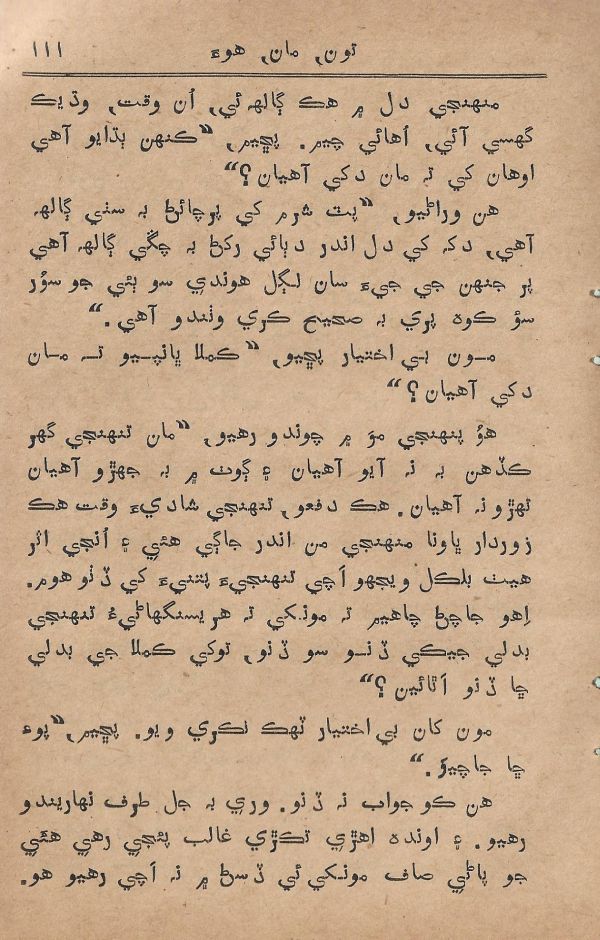 تون, مان, هوءَ ١١١
منهنجي دل ۾ هڪ ڳالهہ ئي, اُن وقت, وڌيڪ
گهسي آئي, اُهائي چيم. پڇيم, “ڪنهن ٻڌايو آهي
اوهان کي تہ مان دکي آهيان؟”
هن ورائيو, “پٽ شرم کي پرچائڻ بہ سٺي ڳالهہ
آهي, دکہ کي دل اندر دٻائي رکڻ بہ چڱي ڳالهہ آهي
پر جنهن جي جيءَ سان لڳل هوندي سو ٻئي جو سوُر
سؤ ڪوهہ پري بہ صحيح ڪري وٺندو آهي.”
مون بي اختيار پڇيو, “ڪملا ڀانپيو تہ مان
دکي آهيان؟”
هوُ پنهنجي موَ ۾ چوندو رهيو, “مان تنهنجي گهر
ڪڏهن بہ نہ آيو آهيان ۽ ڳوٺ ۾ بہ جهڙو آهيان
تهڙو نہ آهيان. هڪ دفعو, تنهنجي شاديءَ وقت هڪ
زوردار ڀاونا منهنجي من اندر جاڳي هئي ۽ اُنجي اثر
هيٺ بلڪل ويجهو اَچي تنهنجيءَ پتنيءَ کي ڏٺو هوم.
اِهو جاچڻ چاهيم تہ مونکي تہ هريسنگهاڻيءُ تنهنجي
بدلي جيڪي ڏنو سو ڏنو, توکي ڪملا جي بدلي
ڇا ڏنو اَٿائين؟”
مون کان بي اختيار ٽهڪ نڪري ويو. پڇيم, “پوءِ
ڇا جاچيوَ.”
هن ڪو جواب نہ ڏنو. وري بہ جل طرف نهاريندو
رهيو. ۽ اونده اهڙي تڪڙي غالب پئجي رهي هئي
جو پاڻي صاف مونکي ئي ڏسڻ ۾ نہ اَچي رهيو هو.